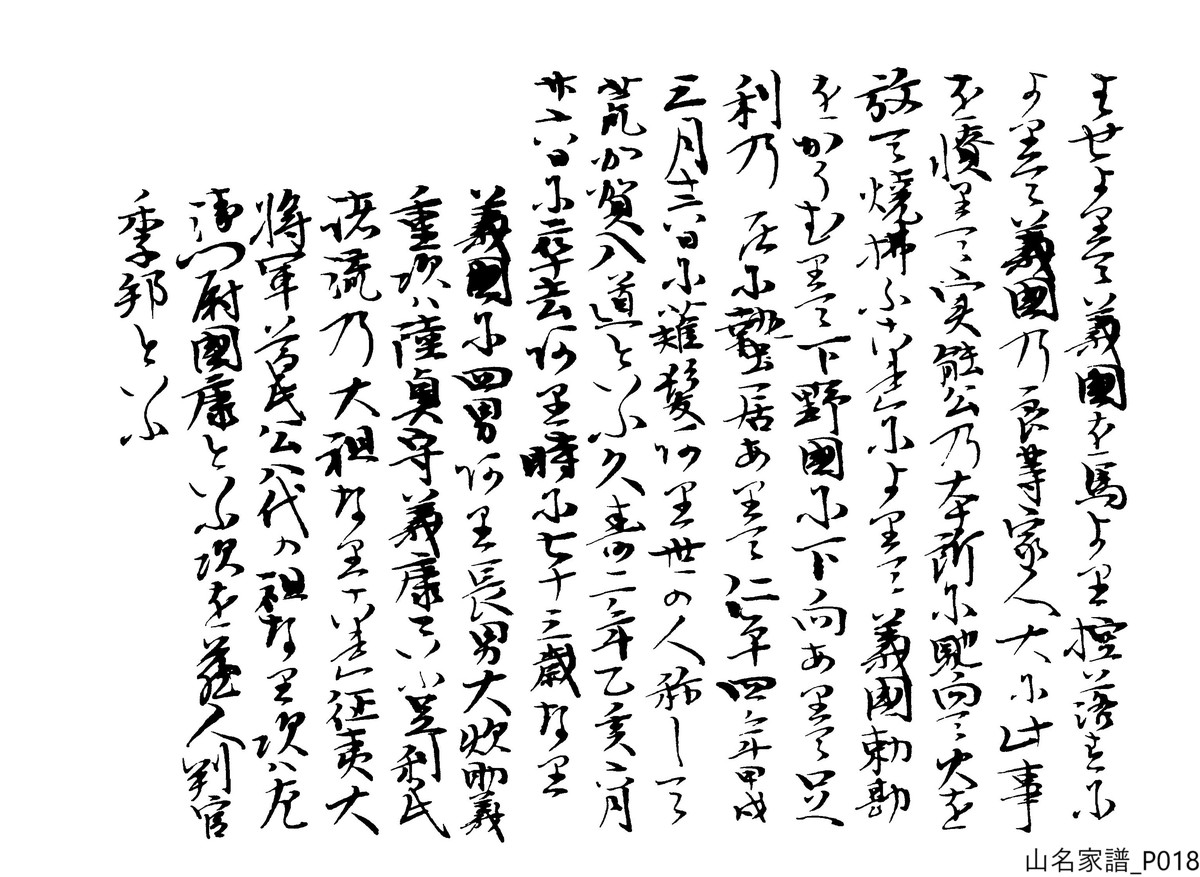 はせよりて義國を馬より控落すに
よりて義國乃良等家人大に此事
を憤りて実能公乃本所に馳向て火を
放て焼拂ふ によりて義國勅勘
をかうむりて下野國に下向ありて足
利乃 居に蟄居ありて仁平四年甲戌
三月十六日に薙髪あり世の人称して
荒加賀入道といふ久寿二年乙亥六月
廿六日に卒去あり時に七十三歳なり
義國に四男あり長男大炊助義
重次ハ陸奥守義康といふ足利氏
庶流乃大祖なり 征夷大
将軍尊氏公八代の祖なり次ハ左
衛門尉國康といふ次を蔵人判官
季邦といふ
山名家譜_P018